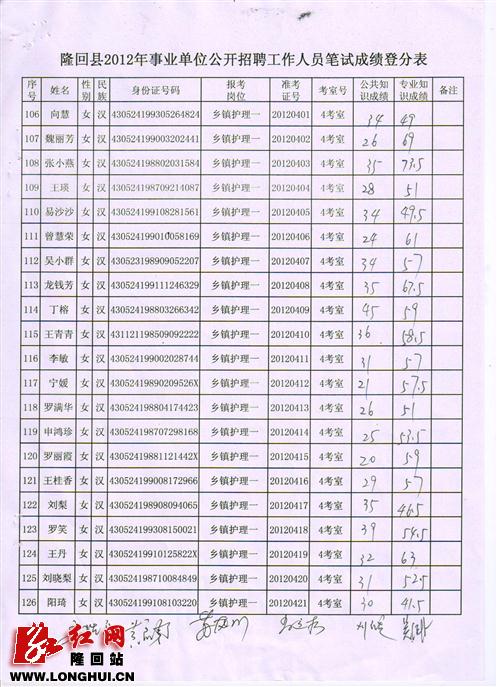 隆回县2012年事业单位公开招聘工作人员笔试成绩登分表
序号 姓名 性别 民族 身份证号码 报考岗位 准考证号 考室号 公共知识成绩 专业知识成绩 备注
106 向慧 女 汉 430524199305264824 乡镇护理一 20120401 4考室 34 49
107 魏丽芳 女 汉 430524199003202441 乡镇护理一 20120402 4考室 26 69
108 张小燕 女 汉 430524198802031584 乡镇护理一 20120403 4考室 35 73.5
109 王瑛 女 汉 430524198709214087 乡镇护理一 20120404 4考室 28 51
110 易沙沙 女 汉 430524199108281561 乡镇护理一 20120405 4考室 34 49.5
111 曾慧荣 女 汉 430524199010058169 乡镇护理一 20120406 4考室 24 61
112 吴小群 女 汉 430523198909052207 乡镇护理一 20120407 4考室 34 57
113 龙钱芳 女 汉 430524199111246329 乡镇护理一 20120408 4考室 35 67.5
114 丁榕 女 汉 430524198803266342 乡镇护理一 20120409 4考室 45 59
115 王青青 女 汉 431121198509092222 乡镇护理一 20120410 4考室 36 58.5
116 李敏 女 汉 430524199002028744 乡镇护理一 20120411 4考室 31 57
117 宁媛 女 汉 43052419890209526X 乡镇护理一 20120412 4考室 21 57.5
118 罗满华 女 汉 430524198804174423 乡镇护理一 20120413 4考室 26 51
119 申鸿珍 女 汉 430524198707298168 乡镇护理一 20120414 4考室 25 53.5
120 罗丽霞 女 汉 43052419881121442X 乡镇护理一 20120415 4考室 20 59
121 王桂香 女 汉 430524199008172966 乡镇护理一 20120416 4考室 29 57
122 刘梨 女 汉 430524198908094065 乡镇护理一 20120417 4考室 35 46.5
123 罗笑 女 汉 430524199308150021 乡镇护理一 20120418 4考室 39 54.5
124 王丹 女 汉 43052419910125822X 乡镇护理一 20120419 4考室 32 63
125 刘晓梨 女 汉 430524198710084849 乡镇护理一 20120420 4考室 31 52.5
126 阳琦 女 汉 430524199108103220 乡镇护理一 20120421 4考室 30 41.5
红网
隆回站
WWW.LONGHUI.CN